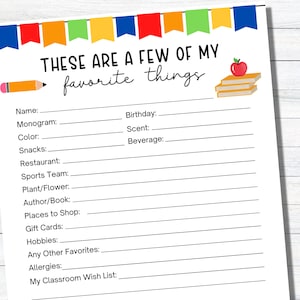 THESE ARE A FEW OF MY
favorite things
Name:
Monogram: Birthday:
Color: Scent:
Snacks: Beverage:
Restaurant:
Sports Team:
Plant/Flower:
Author/Book:
Places to Shop:
Gift Cards:
Hobbies:
Any Other Favorites:
Allergies:
My Classroom Wish List: